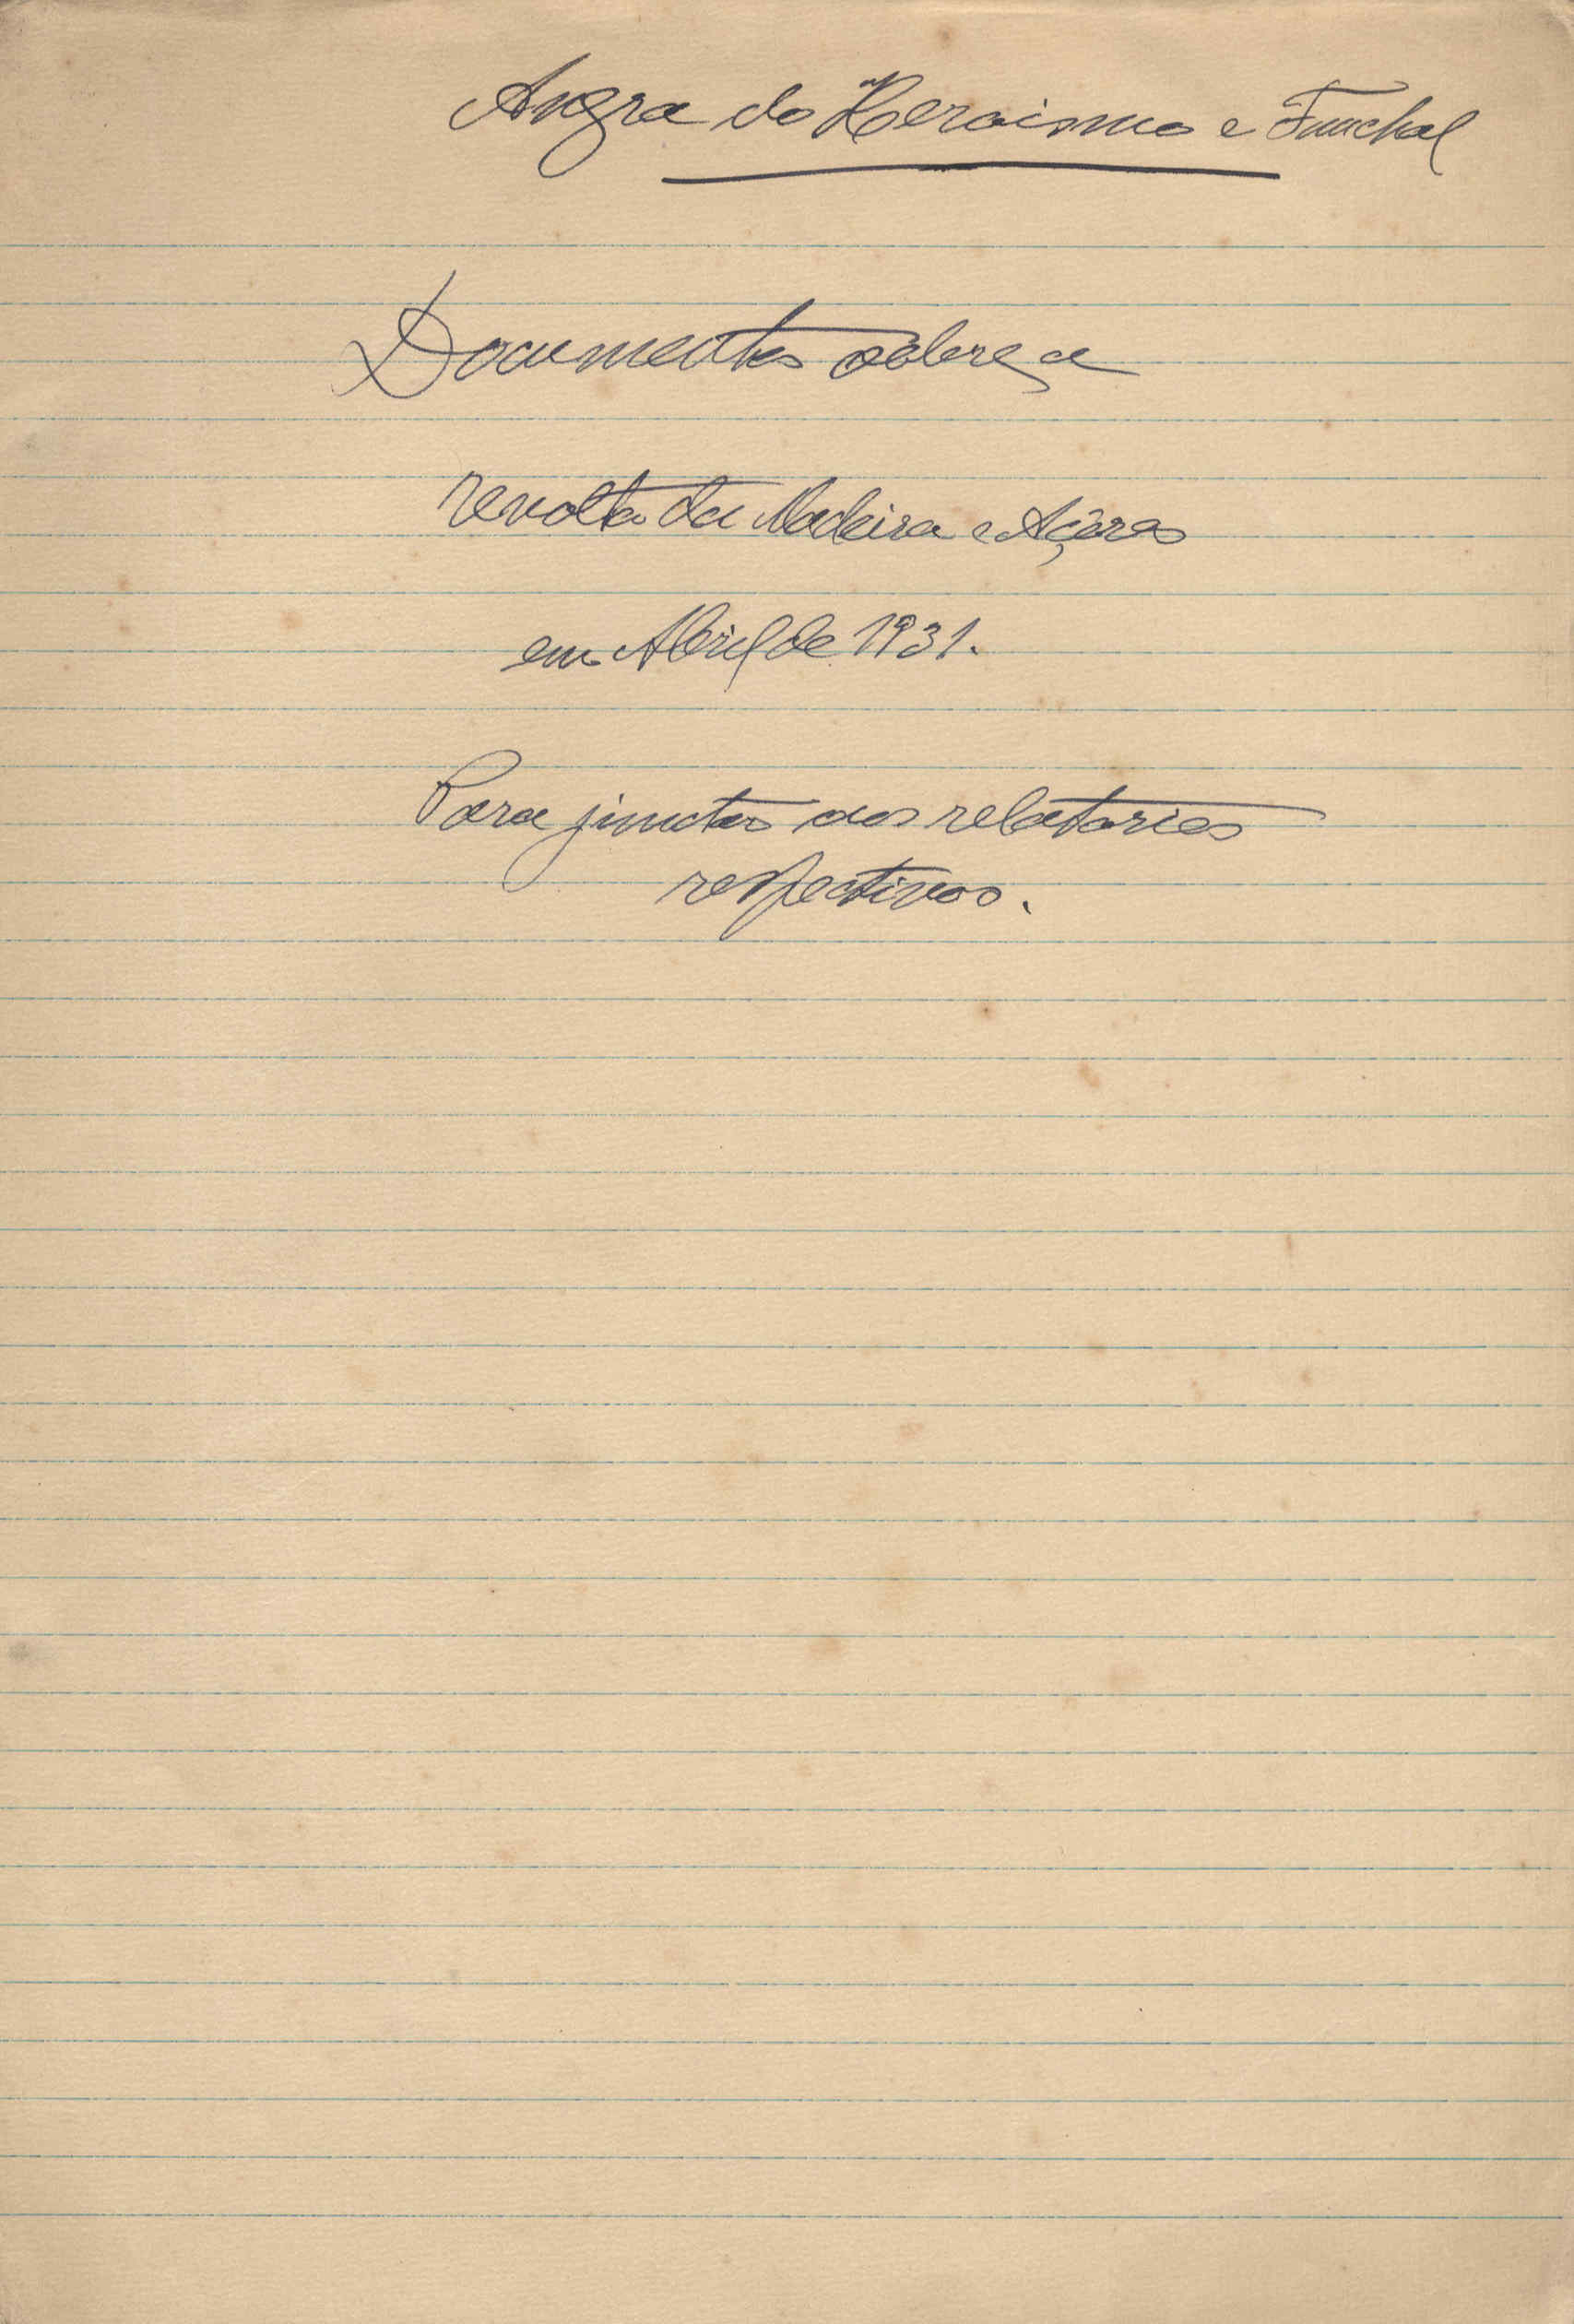 Angra do Heroismo e Funchal
Documentos sôbre a
revolta da Madeira e Açôres
em Abril de 1931.
Para junctar aos relatorios
respectivos.